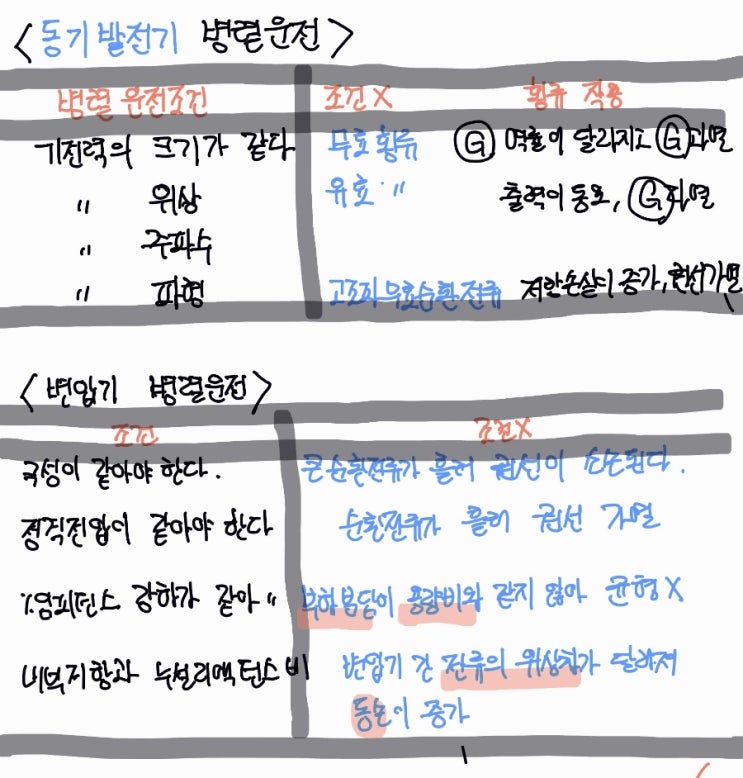 <동기발전기 병렬운전>
병렬 운전조건 조건X 횡류 작용
기전력의 크기가 같다 무효횡류 Ⓖ 역률이 달라지고 Ⓖ과열
〃 위상 유효 〃 출력이 동요, Ⓖ과열
〃 주파수
〃 파형 고조파 무효순환전류 저항손실이 증가, 권선가열
<변압기 병렬운전>
조건 조건X
극성이 같아야 한다. 큰 순환전류가 흘러 권선이 소손된다.
정격전압이 같아야 한다 순환전류가 흘러 권선 가열
%임피던스 강하가 같아 〃 부하분담이 용량비와 같지 않아 균형X
내부저항과 누설리액턴스 비 변압기 간 전류의 위상차가 달라져
동손이 증가